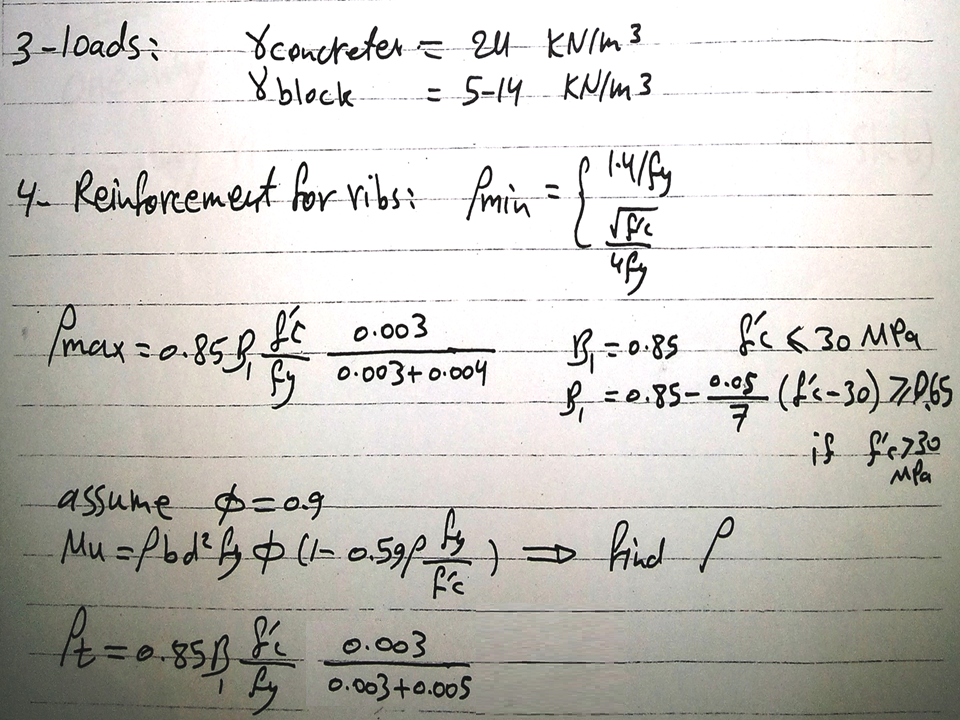 3-loads: γconcreter = 24 KN/m³
γblock = 5-14 KN/m³
4- Reinforcement for ribs: ρmin = { 1.4/fy
√f'c / 4fy
ρmax = 0.85 β₁ f'c/fy 0.003/(0.003+0.004)
β₁ = 0.85 f'c ≤ 30 MPa
β₁ = 0.85 - 0.05/7 (f'c-30) ≥ 0.65
if f'c>30 MPa
assume ϕ = 0.9
Mu = ρbd² fy ϕ (1- 0.59ρ fy/f'c) ⇒ find ρ
ρt = 0.85β₁ f'c/fy 0.003/(0.003+0.005)